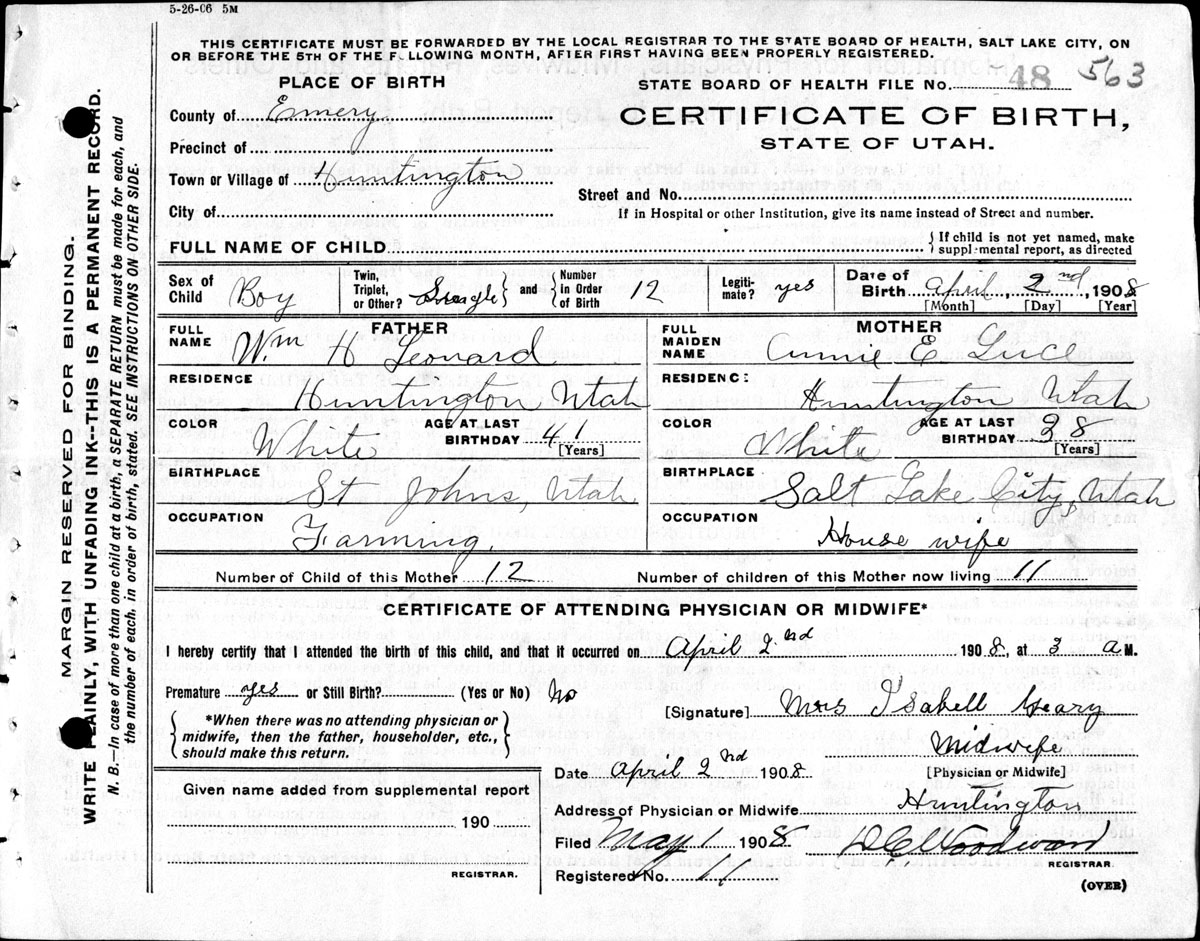 5-26-06 5M
THIS CERTIFICATE MUST BE FORWARDED BY THE LOCAL REGISTRAR TO THE STATE BOARD OF HEALTH, SALT LAKE CITY, ON
OR BEFORE THE 5TH OF THE FOLLOWING MONTH, AFTER FIRST HAVING BEEN PROPERLY REGISTERED.
PLACE OF BIRTH
STATE BOARD OF HEALTH FILE No. 48 563
County of Emery
CERTIFICATE OF BIRTH,
STATE OF UTAH.
Precinct of
Town or Village of Huntington
Street and No.
City of
If in Hospital or other Institution, give its name instead of Street and number.
FULL NAME OF CHILD
{ If child is not yet named, make
supplemental report, as directed
Sex of Child Boy
Twin, Triplet, or Other? Single } and { Number in Order of Birth 12
Legiti-mate? yes
Date of Birth April 2nd, 1908
[Month] [Day] [Year]
FATHER
FULL NAME Wm H Leonard
RESIDENCE Huntington Utah
COLOR White
AGE AT LAST BIRTHDAY 41
[Years]
BIRTHPLACE St Johns, Utah
OCCUPATION Farming.
MOTHER
FULL MAIDEN NAME Annie E Luce
RESIDENCE Huntington Utah
COLOR White
AGE AT LAST BIRTHDAY 38
[Years]
BIRTHPLACE Salt Lake City, Utah
OCCUPATION House wife
Number of Child of this Mother 12
Number of children of this Mother now living 11
CERTIFICATE OF ATTENDING PHYSICIAN OR MIDWIFE*
I hereby certify that I attended the birth of this child, and that it occurred on April 2nd 1908, at 3 a M.
Premature yes or Still Birth? (Yes or No) No
{ *When there was no attending physician or
midwife, then the father, householder, etc.,
should make this return. }
[Signature] Mrs Isabell Geary
Midwife
[Physician or Midwife]
Date April 2nd 1908
Address of Physician or Midwife Huntington
Given name added from supplemental report
190
REGISTRAR.
Filed May 1 1908
D C Woodward
REGISTRAR.
Registered No. 11
(OVER)
MARGIN RESERVED FOR BINDING.
WRITE PLAINLY, WITH UNFADING INK--THIS IS A PERMANENT RECORD.
N. B.—In case of more than one child at a birth, a SEPARATE RETURN must be made for each, and
the number of each, in order of birth, stated. SEE INSTRUCTIONS ON OTHER SIDE.